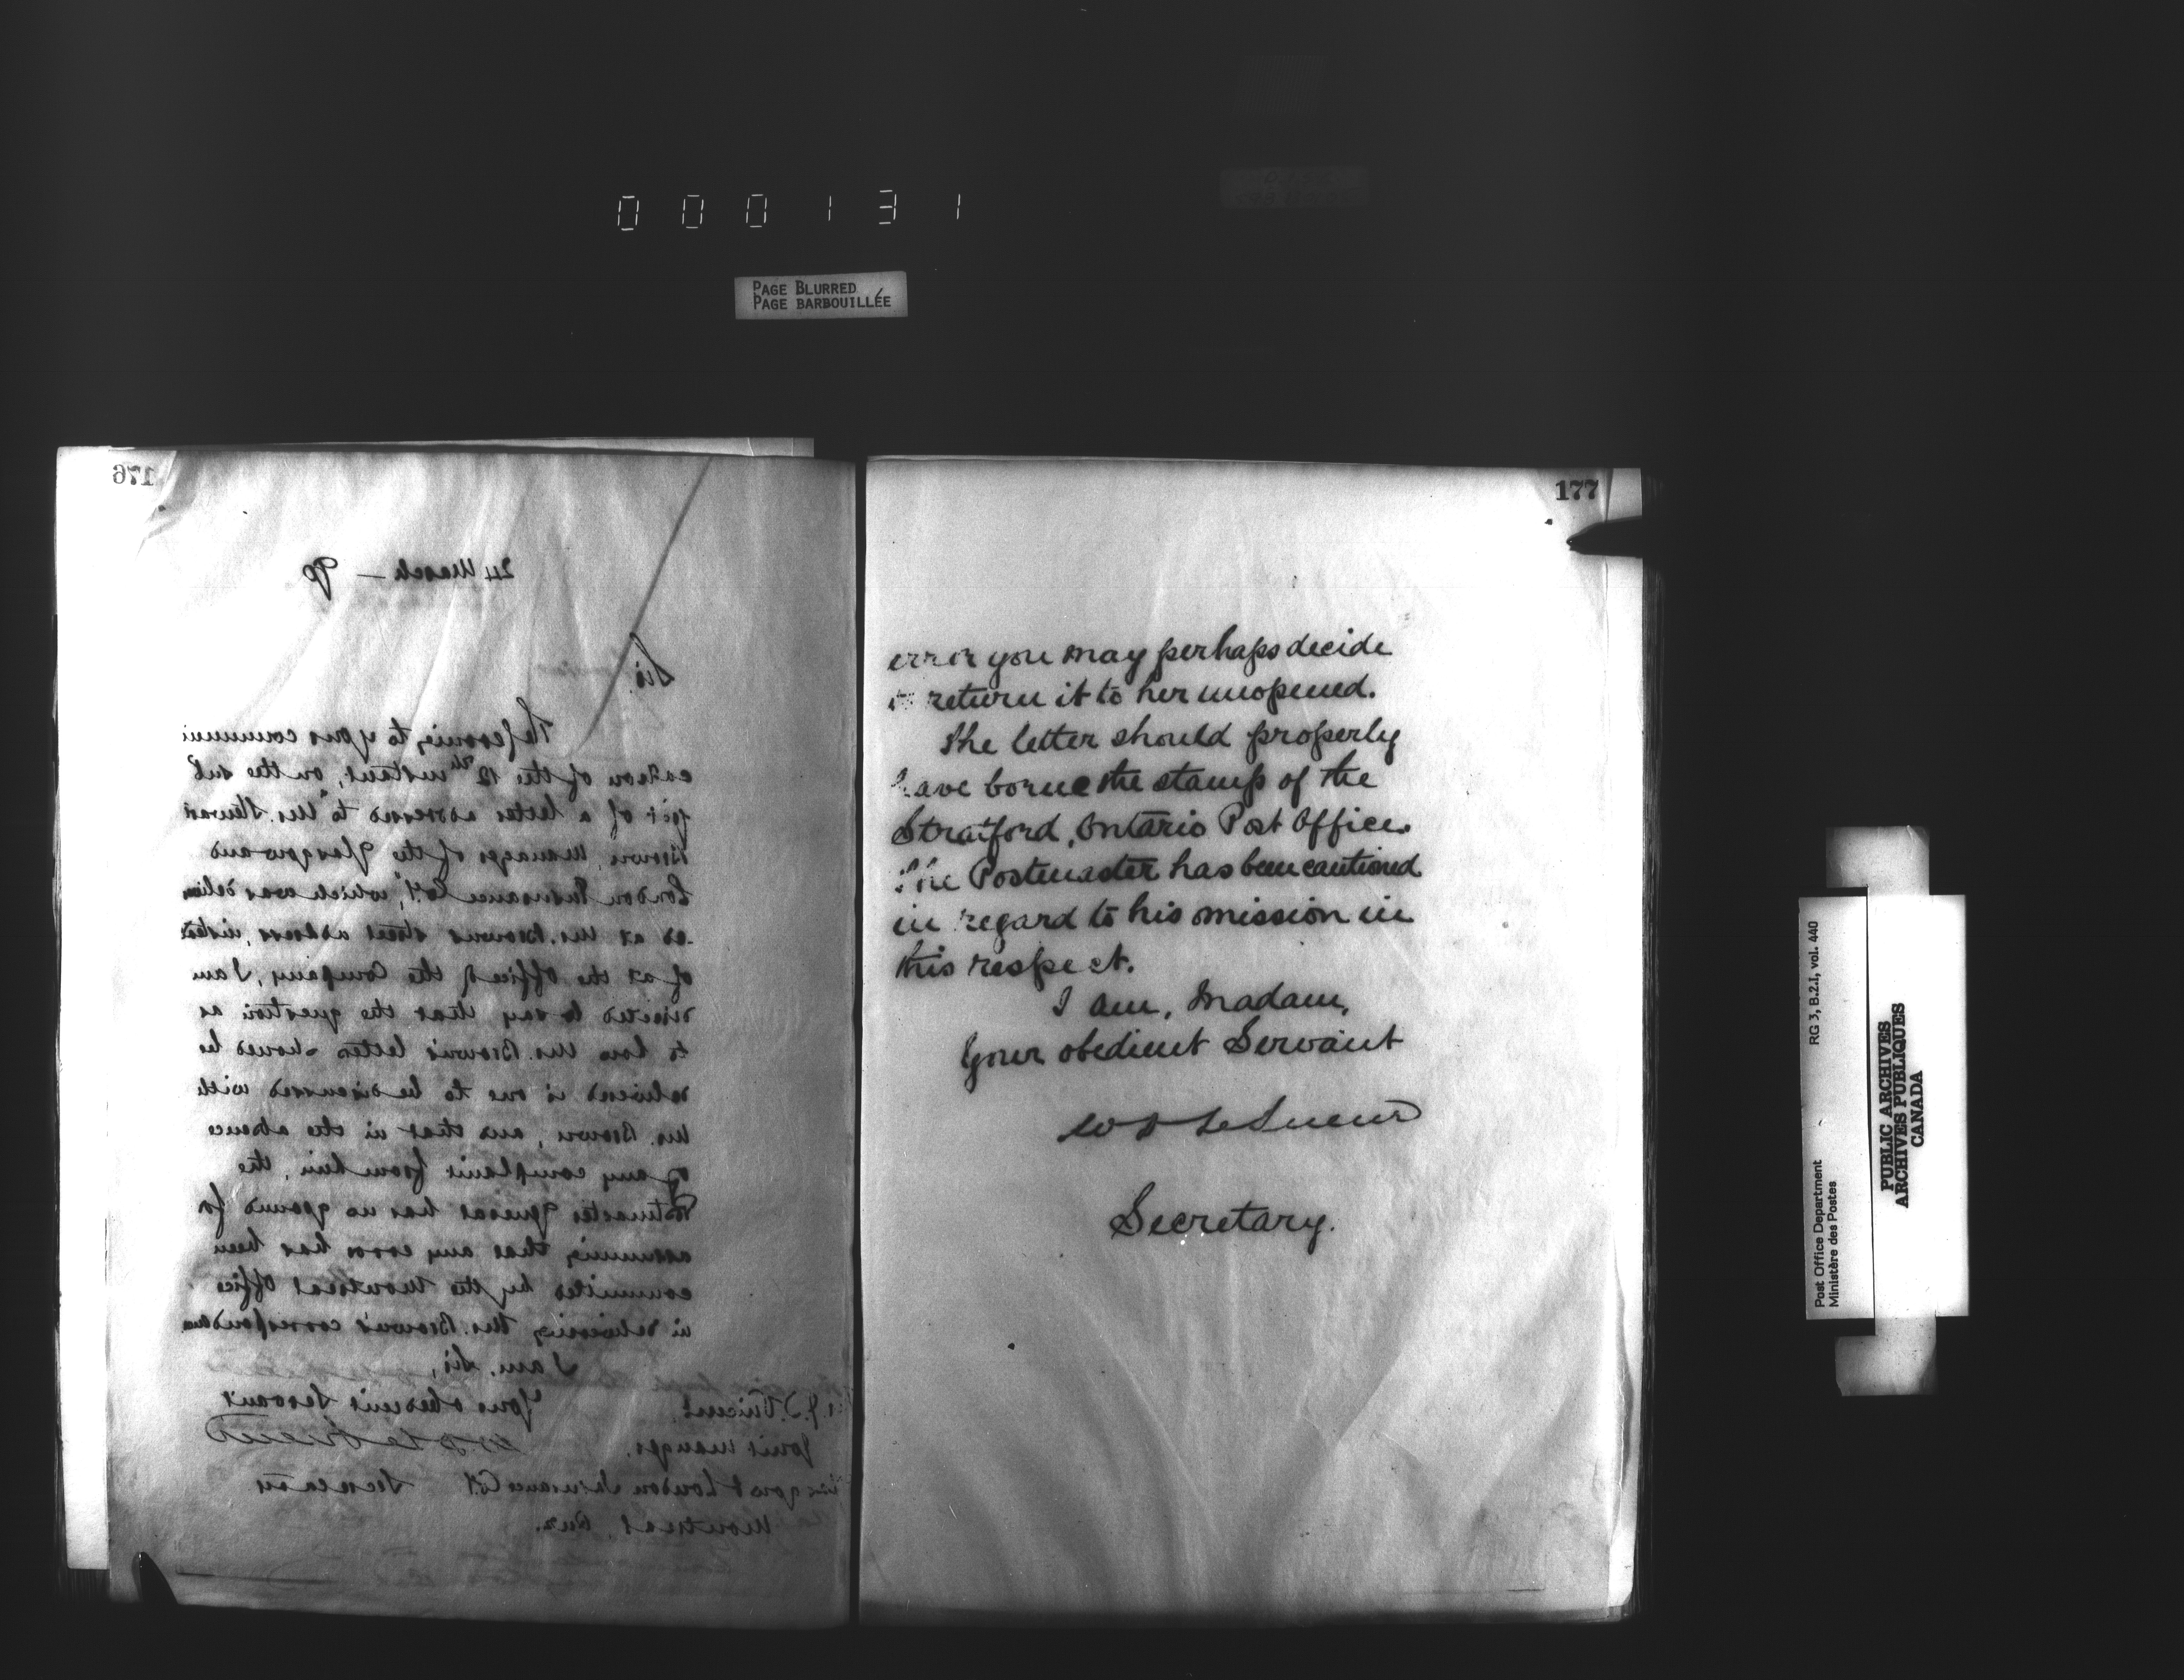 000131
PAGE BLURRED
PAGE BARBOUILLÉE
176
24 March —
Sir,
Referring to your communi
cation of the 12th instant, on the sub
ject of a letter addressed to "Mr. Stewart
Brown, Manager of the Glasgow and
London Insurance Coy.", which was deliver
-ed at Mr. Brown's street address, instead
of at the office of the Company, I am
directed to say that the question as
to how Mr. Brown's letters should be
delivered is one to be discussed with
Mr. Brown, and that in the absence
of any complaint from him, the
Postmaster General has no ground for
assuming that any error has been
committed by the Montreal Office
in delivering Mr. Brown's correspondence.
I am, Sir,
Your obedient Servant
J.T. Vincent
W D LeSueur
Joint Manager.
Glasgow & London Insurance Coy
Secretary
Montreal, Que.
177
error you may perhaps decide
to return it to her unopened.
The letter should properly
have borne the stamp of the
Stratford, Ontario Post Office.
The Postmaster has been cautioned
in regard to his omission in
this respect.
I am, Madam,
Your obedient Servant
W D LeSueur
Secretary.
Post Office Department
Ministère des Postes
RG 3, B.2.1, vol. 440
PUBLIC ARCHIVES
ARCHIVES PUBLIQUES
CANADA